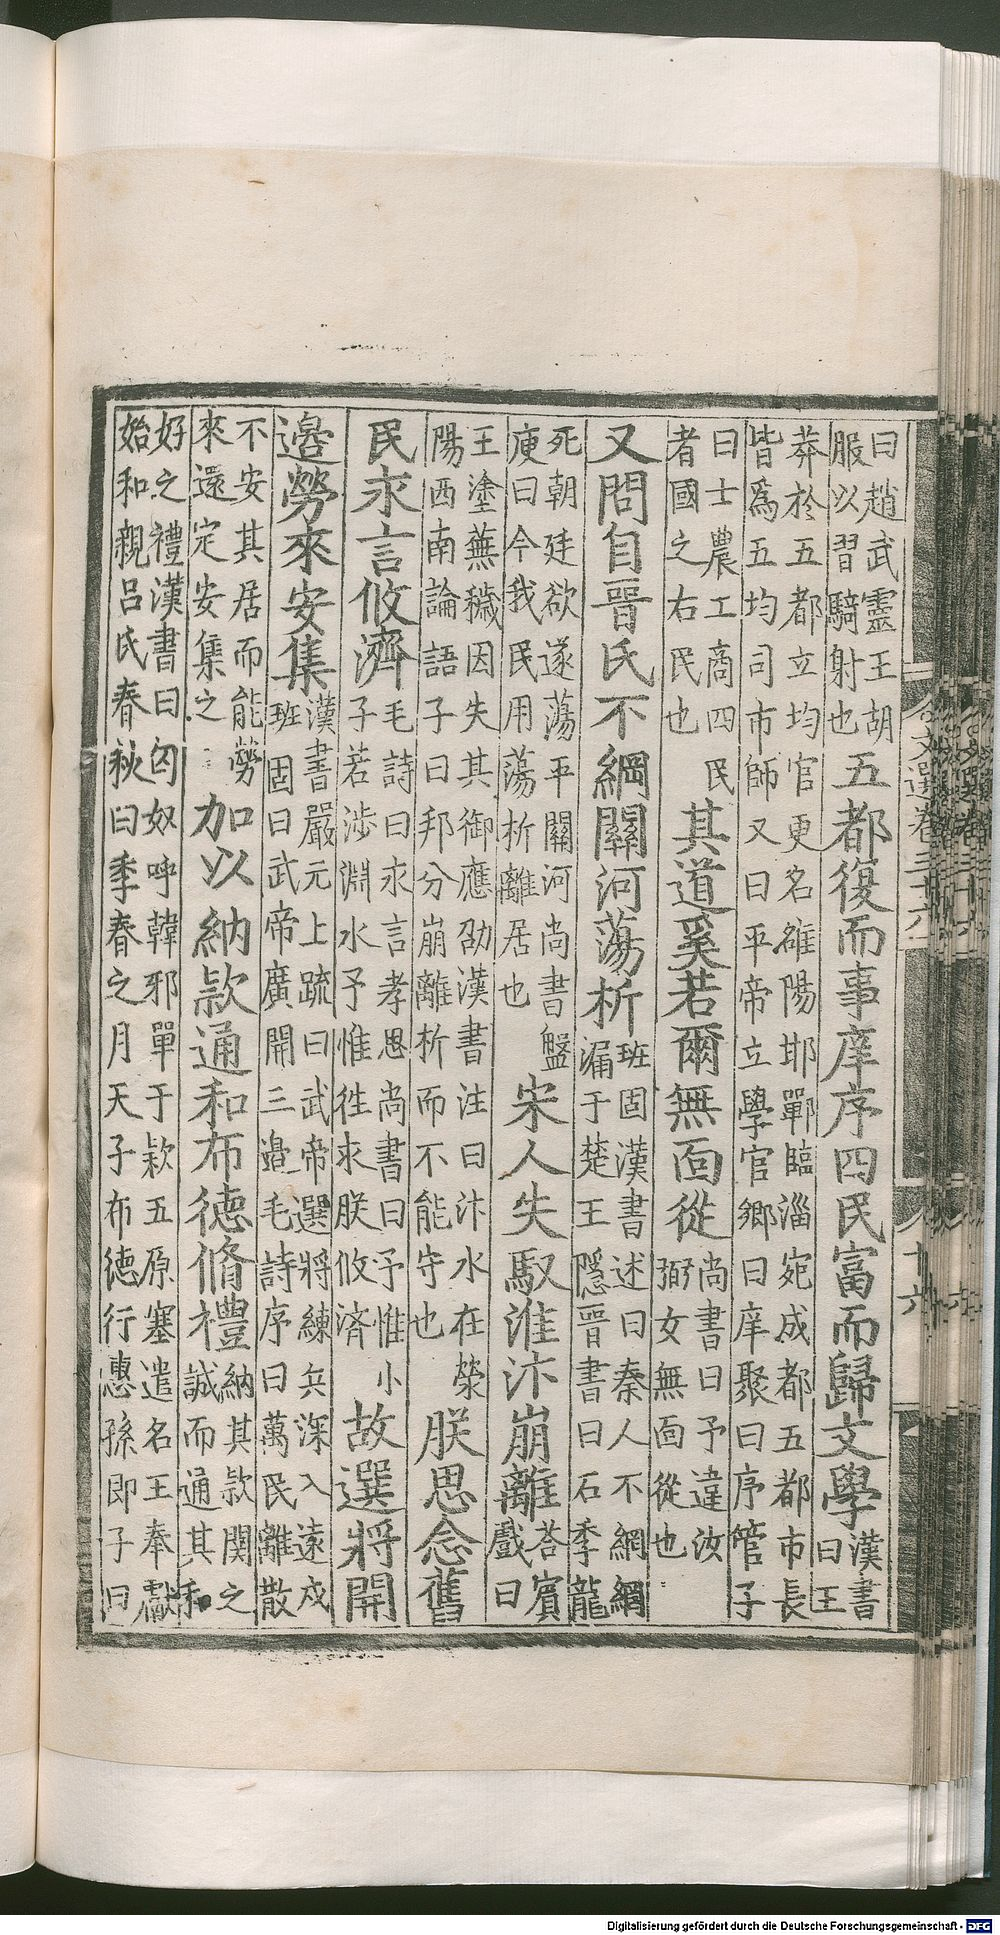 文選卷三十六
十六
曰趙武靈王胡服以習騎射也五都復而事庠序四民富而歸文學漢書曰王
莽於五都立均官更名雒陽邯鄲臨淄宛成都五都市長皆爲五均司市師又曰平帝立學官鄉曰庠聚曰序管子
曰士農工商四民者國之右民也其道奚若爾無面從尚書曰予違汝弼女無面從也
又問自晉氏不綱關河蕩析班固漢書述曰秦人不綱網漏于楚王隱晉書曰石季龍
死朝廷欲遂蕩平關河尚書盤庚曰今我民用蕩析離居也宋人失馭淮汴崩離荅賓戲曰
王塗蕪穢因失其御應劭漢書注曰汴水在滎陽西南論語子曰邦分崩離析而不能守也朕思念舊
民永言攸濟毛詩曰永言孝思尚書曰予惟小子若涉淵水予惟往求朕攸濟故選將開
邊勞來安集漢書嚴元上疏曰武帝選將練兵深入遠戍班固曰武帝廣開三邉毛詩序曰萬民離散
不安其居而能勞來還定安集之加以納款通和布德脩禮納其款関之誠而通其和
好之禮漢書曰匈奴呼韓邪單于款五原塞遣名王奉獻始和親呂氏春秋曰季春之月天子布德行惠孫即子曰
Digitalisierung gefördert durch die Deutsche Forschungsgemeinschaft - DFG